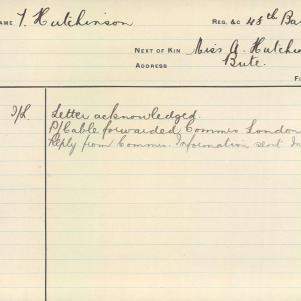 NAME T. Hutchinson REG. &C 48th Ba
NEXT OF KIN Miss A. Hutchin
ADDRESS Bute.
I/L. Letter acknowledged.
P/Cable forwarded Commrs London
Reply from Commrs. Information sent In